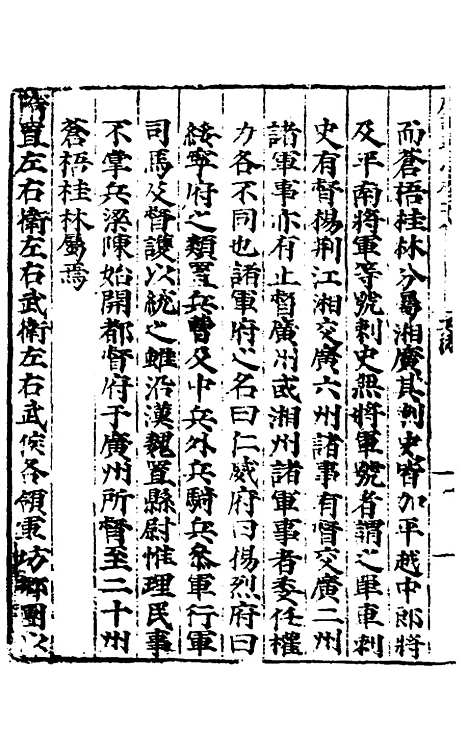 而蒼梧桂林分屬湘廣其刺史皆加平越中郎將
及平南將軍等號刺史無將軍號者謂之單車刺
史有督揚荆江湘交廣六州諸事有督交廣二州
諸軍事亦有止督廣州或湘州諸軍事者委任權
力各不同也諸軍府之名曰仁威府曰揚烈府曰
綏寧府之類置兵曹及中兵外兵騎兵叅軍行軍
司馬及督護以統之雖沿漢魏置縣尉惟理民事
不掌兵梁陳始開都督府于廣州所督至二十州
蒼梧桂林屬焉
隋置左右衛左右武衛左右武候各領軍坊鄉團以